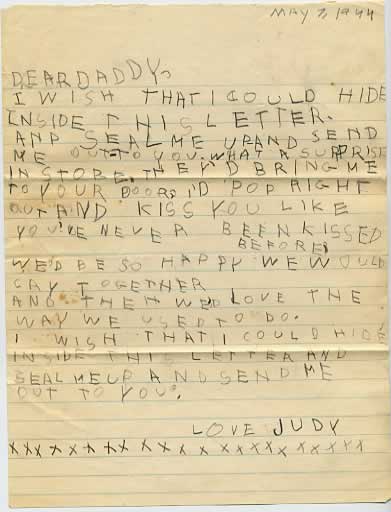 MAY 7, 1944
DEAR DADDY,
I WISH THAT I COULD HIDE
INSIDE THIS LETTER.
AND SEAL ME UP AND SEND
ME OUT TO YOU. WHAT A SURPRISE
IN STORE. THEY'D BRING ME
TO YOUR DOORS I'D POP RIGHT
OUT AND KISS YOU LIKE
YOU'VE NEVER BEEN KISSED
BEFORE,
WE'D BE SO HAPPY WE WOULD
CRY TOGETHER
AND THEN WE'D LOVE THE
WAY WE USED TO DO.
I WISH THAT I COULD HIDE
INSIDE THIS LETTER AND
SEAL ME UP AND SEND ME
OUT TO YOU.
LOVE JUDY
XXXXXXXXXXXXXXXXXXXXXXX